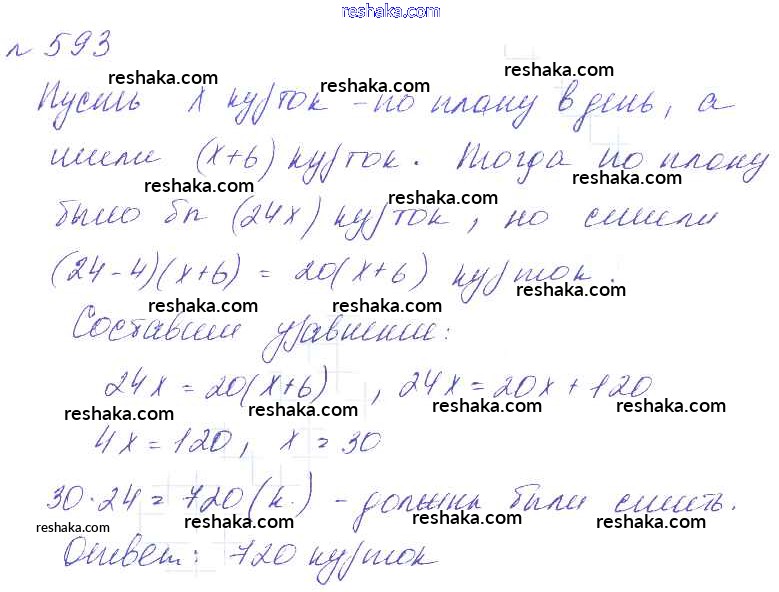 reshaka.com
№ 593
reshaka.com reshaka.com reshaka.com
Пусть x курток - по плану в день, а
шили (x+6) курток. Тогда по плану
reshaka.com reshaka.com reshaka.com
было бы (24x) курток, но сшили
(24-4)(x+6) = 20(x+6) курток.
reshaka.com reshaka.com reshaka.com
Составим уравнение:
24x = 20(x+6), 24x = 20x + 120
reshaka.com reshaka.com reshaka.com reshaka.com
4x = 120, x = 30
30·24 = 720 (к.) - должны были сшить.
reshaka.com reshaka.com reshaka.com reshaka.com
Ответ: 720 курток